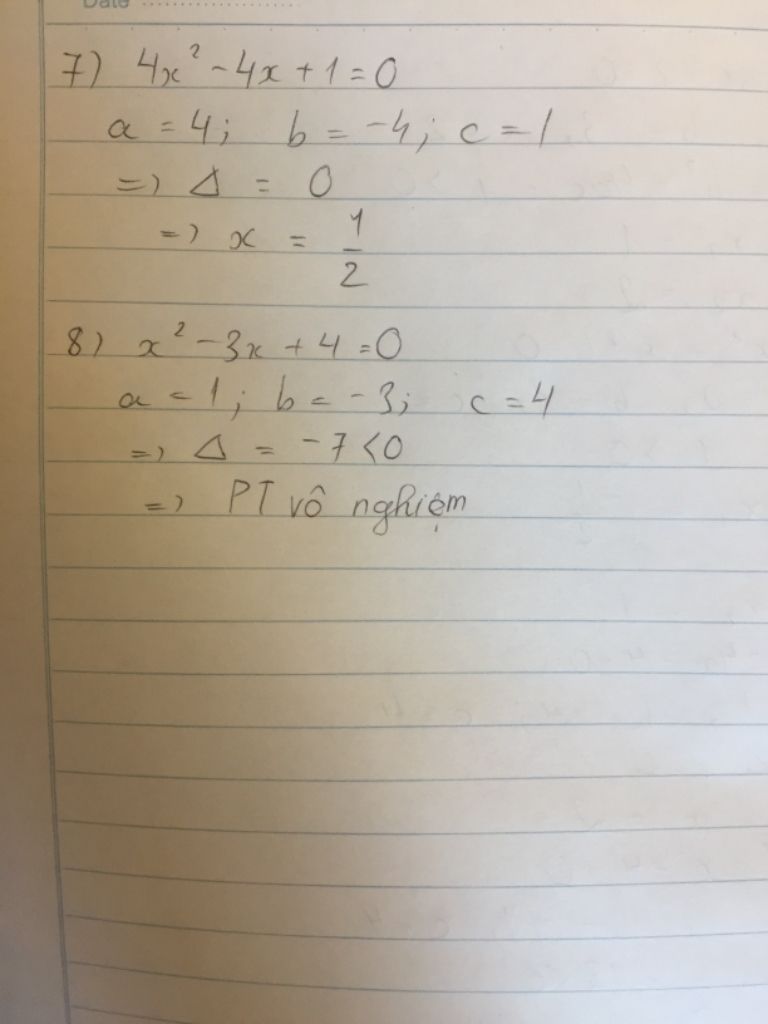 Date
7) 4x² - 4x + 1 = 0
a = 4; b = -4; c = 1
=> Δ = 0
=> x = 1/2
8) x² - 3x + 4 = 0
a = 1; b = -3; c = 4
=> Δ = -7 < 0
=> PT vô nghiệm